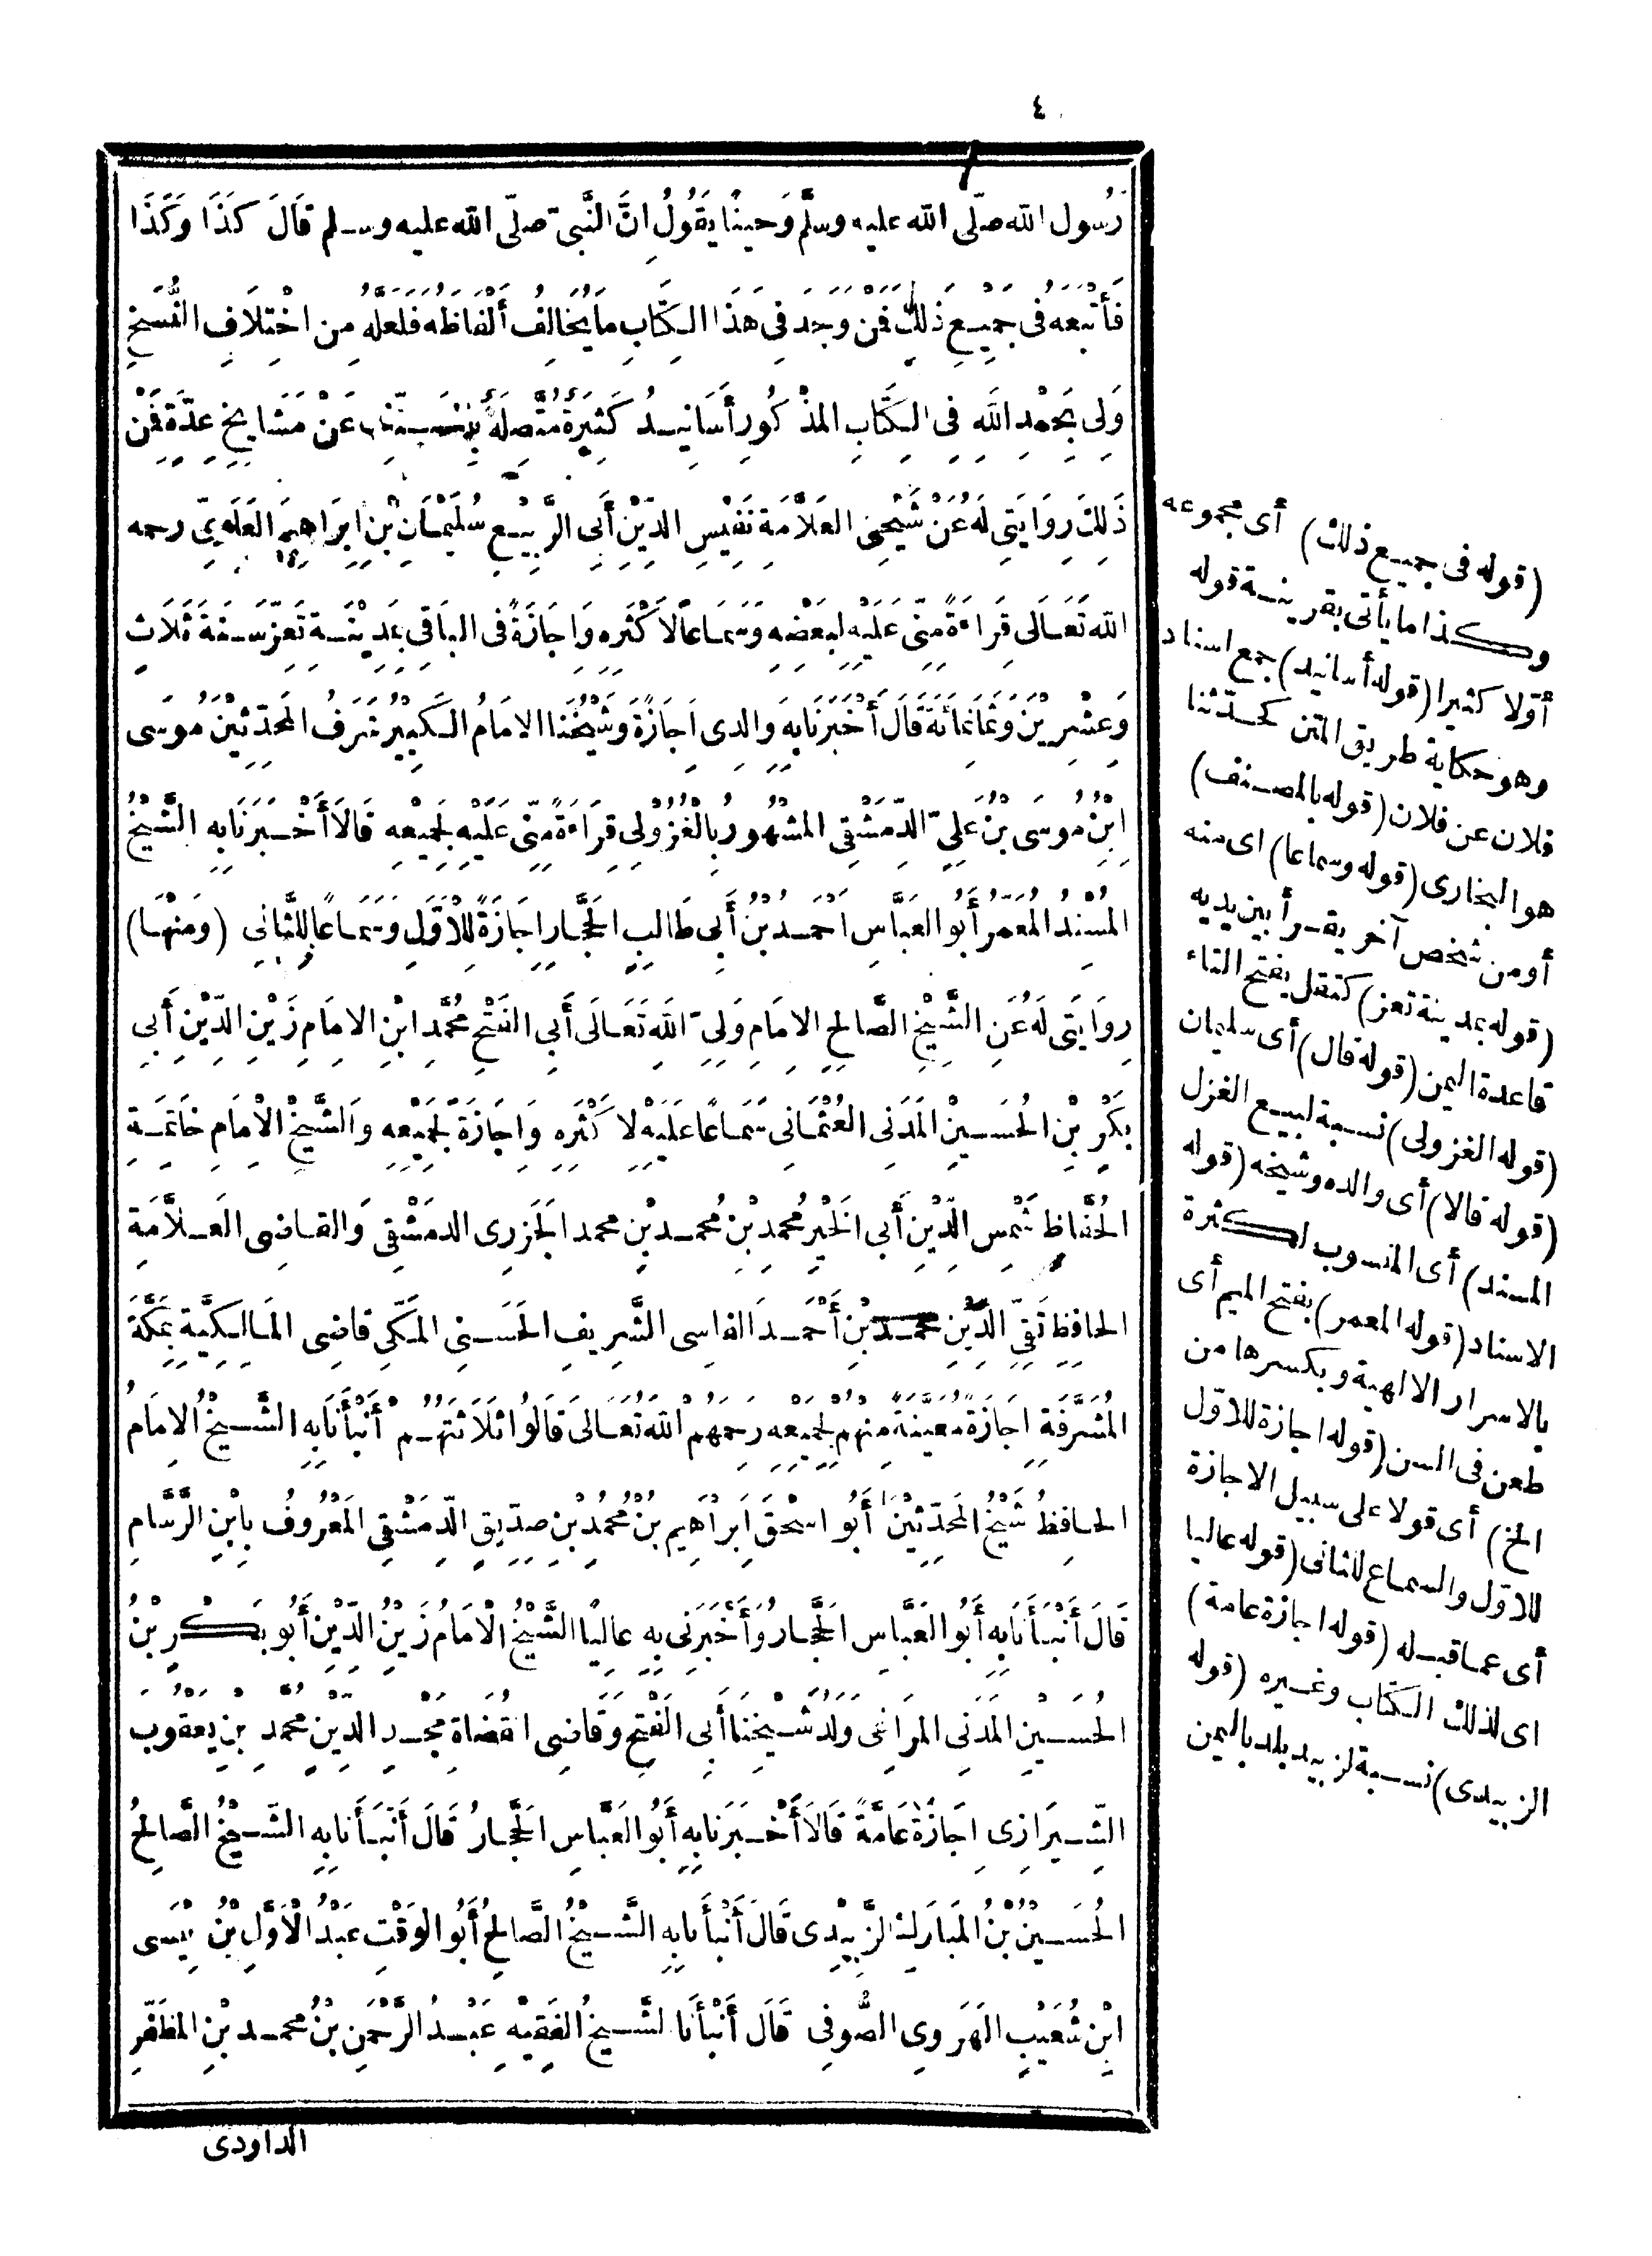 ٤
رَسُول الله صلّى الله عليه وسلَّم وَحينًا يَقُولُ انَّ النَّبىّ صلّى الله عليه وسلم قَالَ كَذَا وَكَذَا
فَأتْبَعُه فى جَميعِ ذٰلكَ فَمَنْ وَجَدَ فى هَذَا الكتَابِ مَا يُخَالفُ أَلْفَاظَه فَلَعَلَّهُ من اخْتلَافِ النُّسَخِ
وَلى بحَمْد الله فِى الكتَابِ المَذْكُورِ أَسَانيدُ كَثيرَةٌ مُتَّصلَةٌ عَنْ مَشَايخِ عدَّةٍ فَمنْ
ذَلكَ رِوَايَتى لَهُ عَنْ شَيْخِى العَلاَّمَة نَفيْسِ الدّيْنِ أَبى الرَّبيْع سُلَيْمَانَ بْنِ ابرَاهيمَ العَلَوىّ رحمه
الله تَعَالَى قرَاءَةً منّى عَلَيْه لبَعْضه وَسَمَاعًا لاَكْثَره وَاجَازَةً فى البَاقى بمَديْنَة تَعزّ سَنَةَ ثَلَاثٍ
وَعشْريْنَ وَثَمَانمائَة قَالَ أَخْبَرَنَا به وَالدى اجَازَةً وَشَيْخُنَا الامَامُ الكَبيْرُ شَرَفُ المُحَدّثيْنَ مُوسَى
ابْنُ مُوسَى بنِ عَلىّ الدّمَشْقى المَشْهُورُ بالْغُزُوْلى قرَاءَةً منّى عَلَيْه لجَميْعه قَالَا أَخْبَرَنَا به الشَّيْخُ
المُسْندُ المُعَمَّر أَبُو العَبَّاسِ احْمَدُ بْنُ أَبى طَالبٍ الحَجَّار اجَازَةً للْاوَّل وَسَمَاعًا للثَّانى (وَمنْهَا)
رِوَايَتى لَهُ عَنِ الشَّيْخِ الصَّالحِ الامَام وَلىّ الله تَعَالَى أَبى الفَتْحِ مُحَمَّد ابْنِ الامَامِ زَيْنِ الدّيْنِ أَبى
بَكْرِ بْنِ الحُسَيْنِ المَدَنى العُثْمَانى سَمَاعًا عَلَيْه لاَكْثَره وَاجَازَةً لجَميْعه وَالشَّيْخِ الْامَام خَاتمَة
الحُفَّاظ شَمْس الدّيْن أَبى الخَيْر مُحمد بْن مُحمد بْن محمد الجَزَرى الدمَشْقى وَالقَاضى العَلاَّمَة
الحافظ تَقىّ الدّيْن محمد بْن أَحْمَدَ الفَاسى الشَّريف الحَسَنى المَكّى قَاضى المَالكيَّة بمَكَّةَ
المُشَرَّفَة اجَازَةً مُعَيَّنَةً منهم لجَميْعه رَحمَهُمْ الله تَعَالَى قَالُوا ثَلَاثَتُهُمْ أَنْبَأَنَا به الشَّيْخُ الامَامُ
الحَافظُ شَيْخُ المُحَدّثيْن أَبُو اسْحٰقَ ابْرَاهيم بنُ مُحَمَّد بْنِ صدّيقٍ الدّمَشْقى المَعْرُوفُ بابْنِ الرَّسَّام
قَالَ أَنْبَأَنَا به أَبُو العَبَّاس الحَجَّارُ وَأَخْبَرَنى به عَاليًا الشَّيْخُ الْامَامُ زَيْنُ الدّيْنِ أَبُو بَكْرِ بْنُ
الحُسَيْنِ المَدَنى المَرَاغى وَلَدُ شَيْخنَا أَبى الفَتْحِ وَقَاضى القُضَاة مَجْدُ الدّيْن مُحَمَّدُ بْنُ يَعْقُوبَ
الشّيرَازى اجَازَةً عَامَّةً قَالَا أَخْبَرَنَا به أَبُو العَبَّاس الحَجَّارُ قَالَ أَنْبَأَنَا به الشَّيْخُ الصَّالحُ
الحُسَيْنُ بْنُ المُبَارَكِ الزَّبيْدى قَالَ أَنْبَأَنَا به الشَّيْخُ الصَّالحُ أَبُو الوَقْت عَبْدُ الْاوَّلِ بْنُ عيْسَى
ابْنِ شُعَيْبٍ الهَرَوى الصُّوفى قَالَ أَنْبَأَنَا الشَّيخُ الفَقيْه عَبْدُ الرَّحْمَنِ بْنُ محمد بْنِ المُظَفَّرِ
الداودى
(قوله فى جميع ذلك) أى مجموعه
وكذا ما يأتى بقرينة قوله
أوّلا كثيرا (قوله أسانيد) جمع اسناد
وهو حكاية طريق المتن كحدّثنا
فلان عن فلان (قوله بالمصنف)
هو البخارى (قوله وسماعا) اى منه
أو من شخص آخر يقرأ بين يديه
(قوله بمدينة تعز) كتقل بفتح التاء
قاعدة اليمن (قوله قال) أى سليمان
(قوله الغزولى) نسبة لبيع الغزل
(قوله قالا) أى والده وشيخه (قوله
المسند) أى المنسوب لكثرة
الاسناد (قوله المعمر) بفتح الميم أى
بالاسرار الالهية وبكسرها من
طعن فى السن (قوله اجازة للاوّل
الخ) أى قولا على سبيل الاجازة
للاوّل والسماع للثانى (قوله عاليا
أى عما قبله (قوله اجازة عامة)
اى لذلك الكتاب وغيره (قوله
الزبيدى) نسبة لزبيد بلد باليمن